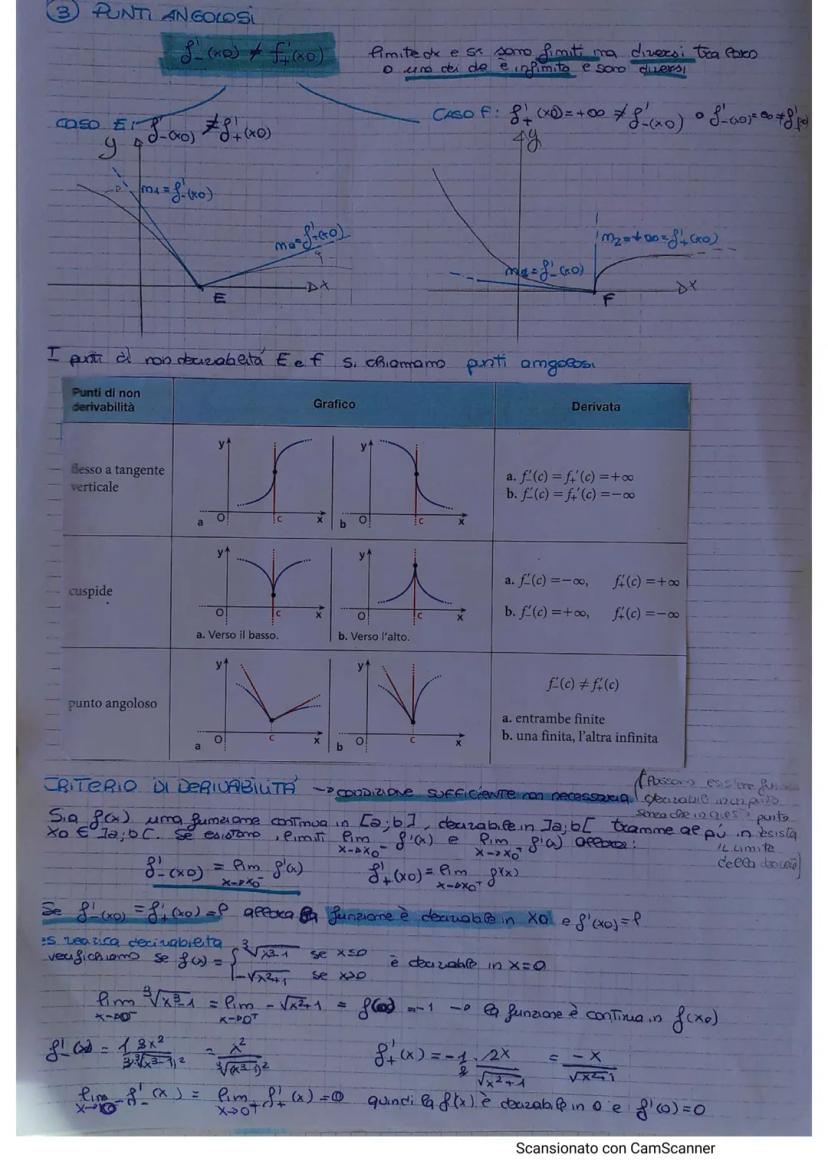 ③ PUNTI ANGOLOSI
f'₋(x0) ≠ f'₊(x0)
limite dx e sx sono finiti ma diversi tra loro
o uno dei due è infinito e sono diversi
CASO E: f'₋(x0) ≠ f'₊(x0)
CASO F: f'₊(x0) = +∞ ≠ f'₋(x0) o f'₋(x0) = ∞ ≠ f'₊(x0)
y
m₁ = f'₋(x0)
m₂ = f'₊(x0)
E
x
y
m₂ = +∞ = f'₊(x0)
m₁ = f'₋(x0)
F
x
I punti di non derivabilità E e F si chiamano punti angolosi
Punti di non derivabilità
Grafico
Derivata
flesso a tangente verticale
y
O
c
x
a
y
O
c
x
b
a. f₋'(c) = f₊'(c) = +∞
b. f₋'(c) = f₊'(c) = −∞
cuspide
y
O
c
x
a. Verso il basso.
y
O
c
x
b. Verso l'alto.
a. f₋'(c) = −∞, f₊'(c) = +∞
b. f₋'(c) = +∞, f₊'(c) = −∞
punto angoloso
y
O
c
x
a
y
O
c
x
b
f₋'(c) ≠ f₊'(c)
a. entrambe finite
b. una finita, l'altra infinita
CRITERIO DI DERIVABILITÀ → CONDIZIONE SUFFICIENTE non necessaria
(Possono esistere
derivabile in un punto
senza che in quel punto
esista
il limite
della
Sia f(x) una funzione continua in [a;b], derivabile in ]a;b[ tranne al più in
x0 ∈ ]a;b[. Se esistono i limiti lim x→x0⁻ f'(x) e lim x→x0⁺ f'(x) allora:
f'₋(x0) = lim x→x0⁻ f'(x) f'₊(x0) = lim x→x0⁺ f'(x)
Se f'₋(x0) = f'₊(x0) = l allora la funzione è derivabile in x0 e f'(x0) = l
es verifica derivabilità
verifichiamo se f(x) = { ∛(x³-1) se x≤0
-√(x²+1) se x>0
è derivabile in x=0
lim x→0⁻ ∛(x³-1) = lim x→0⁺ -√(x²+1) = f(0) = -1 → la funzione è continua in f(x0)
f'₋(x) = 1 3x² / 3 ∛(x³-1)² = x² / ∛(x³-1)² f'₊(x) = -1/2 · 2x / √(x²+1) = -x / √(x²+1)
lim x→0⁻ f'₋(x) = lim x→0⁺ f'₊(x) = 0 quindi la f(x) è derivabile in 0 e f'(0) = 0
Scansionato con CamScanner